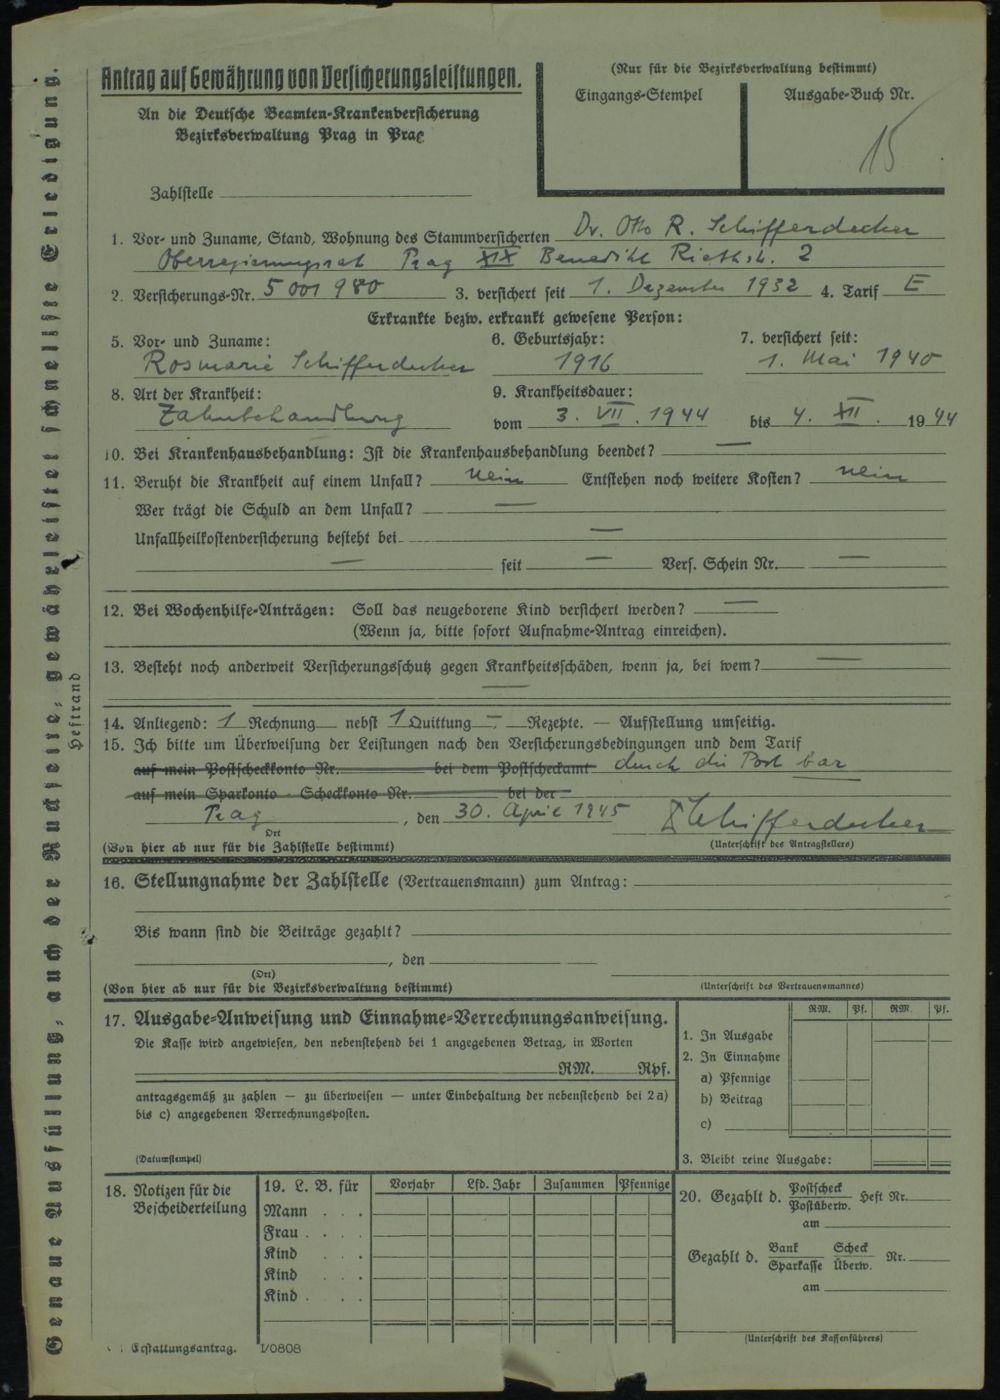 Genaue Ausfüllung, auch der Rückseite, gewährleistet schnellste Erledigung.
Heftrand
Antrag auf Gewährung von Versicherungsleistungen.
An die Deutsche Beamten-Krankenversicherung
Bezirksverwaltung Prag in Prag
Zahlstelle
(Nur für die Bezirksverwaltung bestimmt)
Eingangs-Stempel
Ausgabe-Buch Nr.
15
1. Vor- und Zuname, Stand, Wohnung des Stammversicherten Dr. Otto R. Schifferdecker
Oberregierungsrat Prag XIX Benedikt Riethstr. 2
2. Versicherungs-Nr. 5 001 980 3. versichert seit 1. Dezember 1932 4. Tarif E
Erkrankte bezw. erkrankt gewesene Person:
5. Vor- und Zuname: 6. Geburtsjahr: 7. versichert seit:
Rosmarie Schifferdecker 1916 1. Mai 1940
8. Art der Krankheit: 9. Krankheitsdauer:
Zahnbehandlung vom 3. VII. 1944 bis 4. XII. 1944
10. Bei Krankenhausbehandlung: Ist die Krankenhausbehandlung beendet? —
11. Beruht die Krankheit auf einem Unfall? nein Entstehen noch weitere Kosten? nein
Wer trägt die Schuld an dem Unfall? —
Unfallheilkostenversicherung besteht bei —
— seit — Vers. Schein Nr. —
12. Bei Wochenhilfe-Anträgen: Soll das neugeborene Kind versichert werden? —
(Wenn ja, bitte sofort Aufnahme-Antrag einreichen).
13. Besteht noch anderweit Versicherungsschutz gegen Krankheitsschäden, wenn ja, bei wem? —
—
14. Anliegend: 1 Rechnung nebst 1 Quittung — Rezepte. — Aufstellung umseitig.
15. Ich bitte um Überweisung der Leistungen nach den Versicherungsbedingungen und dem Tarif
auf mein Postscheckkonto Nr. bei dem Postscheckamt durch die Post bar
auf mein Sparkonto - Scheckkonto Nr. bei der
Prag, den 30. April 1945 Schifferdecker
Ort (Unterschrift des Antragstellers)
(Von hier ab nur für die Zahlstelle bestimmt)
16. Stellungnahme der Zahlstelle (Vertrauensmann) zum Antrag:
Bis wann sind die Beiträge gezahlt?
, den
(Ort) (Unterschrift des Vertrauensmannes)
(Von hier ab nur für die Bezirksverwaltung bestimmt)
17. Ausgabe-Anweisung und Einnahme-Verrechnungsanweisung.
Die Kasse wird angewiesen, den nebenstehend bei 1 angegebenen Betrag, in Worten
RM. Rpf.
antragsgemäß zu zahlen — zu überweisen — unter Einbehaltung der nebenstehend bei 2 a)
bis c) angegebenen Verrechnungsposten.
(Datumstempel)
RM. Pf. RM. Pf.
1. In Ausgabe
2. In Einnahme
a) Pfennige
b) Beitrag
c)
3. Bleibt reine Ausgabe:
18. Notizen für die
Bescheiderteilung
19. L. B. für Vorjahr Lfd. Jahr Zusammen Pfennige
Mann . . .
Frau . . . .
Kind . . .
Kind . . .
Kind . . . .
20. Gezahlt d. Postscheck Postüberw. Heft Nr.
am
Gezahlt d. Bank Sparkasse Scheck Überw. Nr.
am
(Unterschrift des Kassenführers)
Erstattungsantrag. I/0808